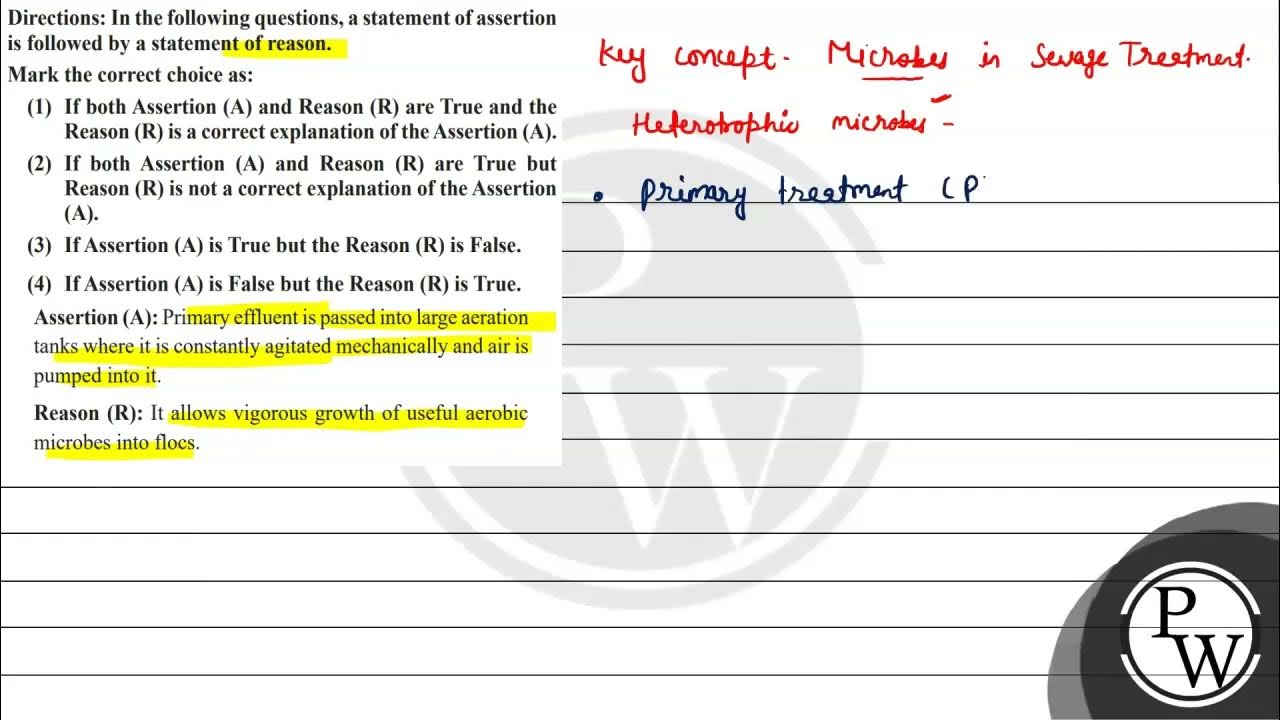 Directions: In the following questions, a statement of assertion
is followed by a statement of reason.
Mark the correct choice as:
(1) If both Assertion (A) and Reason (R) are True and the
Reason (R) is a correct explanation of the Assertion (A).
(2) If both Assertion (A) and Reason (R) are True but
Reason (R) is not a correct explanation of the Assertion
(A).
(3) If Assertion (A) is True but the Reason (R) is False.
(4) If Assertion (A) is False but the Reason (R) is True.
Assertion (A): Primary effluent is passed into large aeration
tanks where it is constantly agitated mechanically and air is
pumped into it.
Reason (R): It allows vigorous growth of useful aerobic
microbes into flocs.
Key concept - Microbes in Sewage Treatment.
Heterotrophic microbes -
• Primary treatment (P
P
W
PW